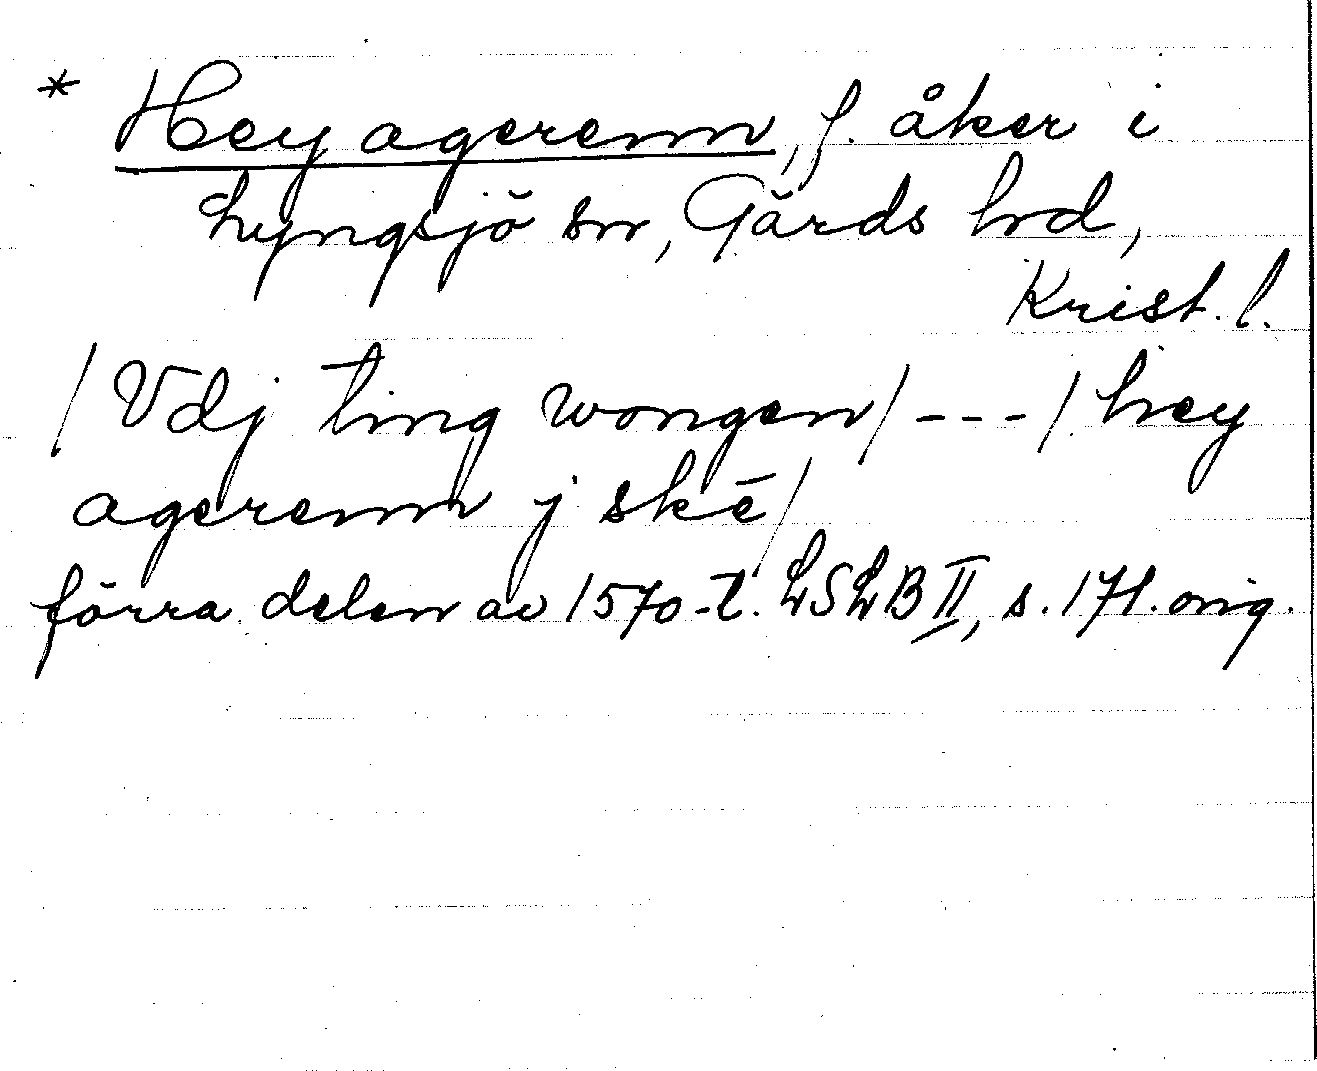 * Hey agerenn, f. åker i
Lyngsjö sn, Gärds hrd,
Krist. l.
/Vdj ting wongen/ - - - /hey
agerenn j skē/
förra delen av 1570-t. LSLB II, s. 171. orig.